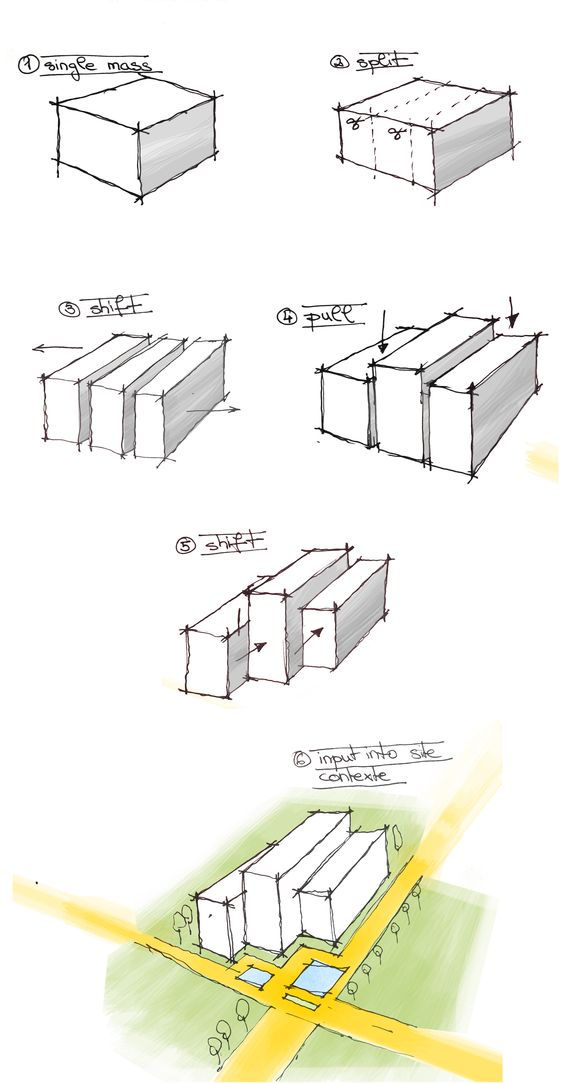 1 single mass
2 split
3 shift
4 pull
5 shift
6 input into site
contexte